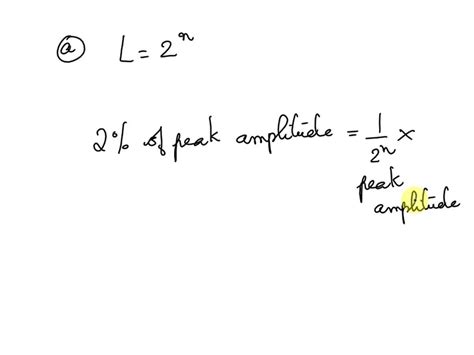 (a) L = 2^n
2% of peak amplitude = 1/2^n ×
peak
amplitude